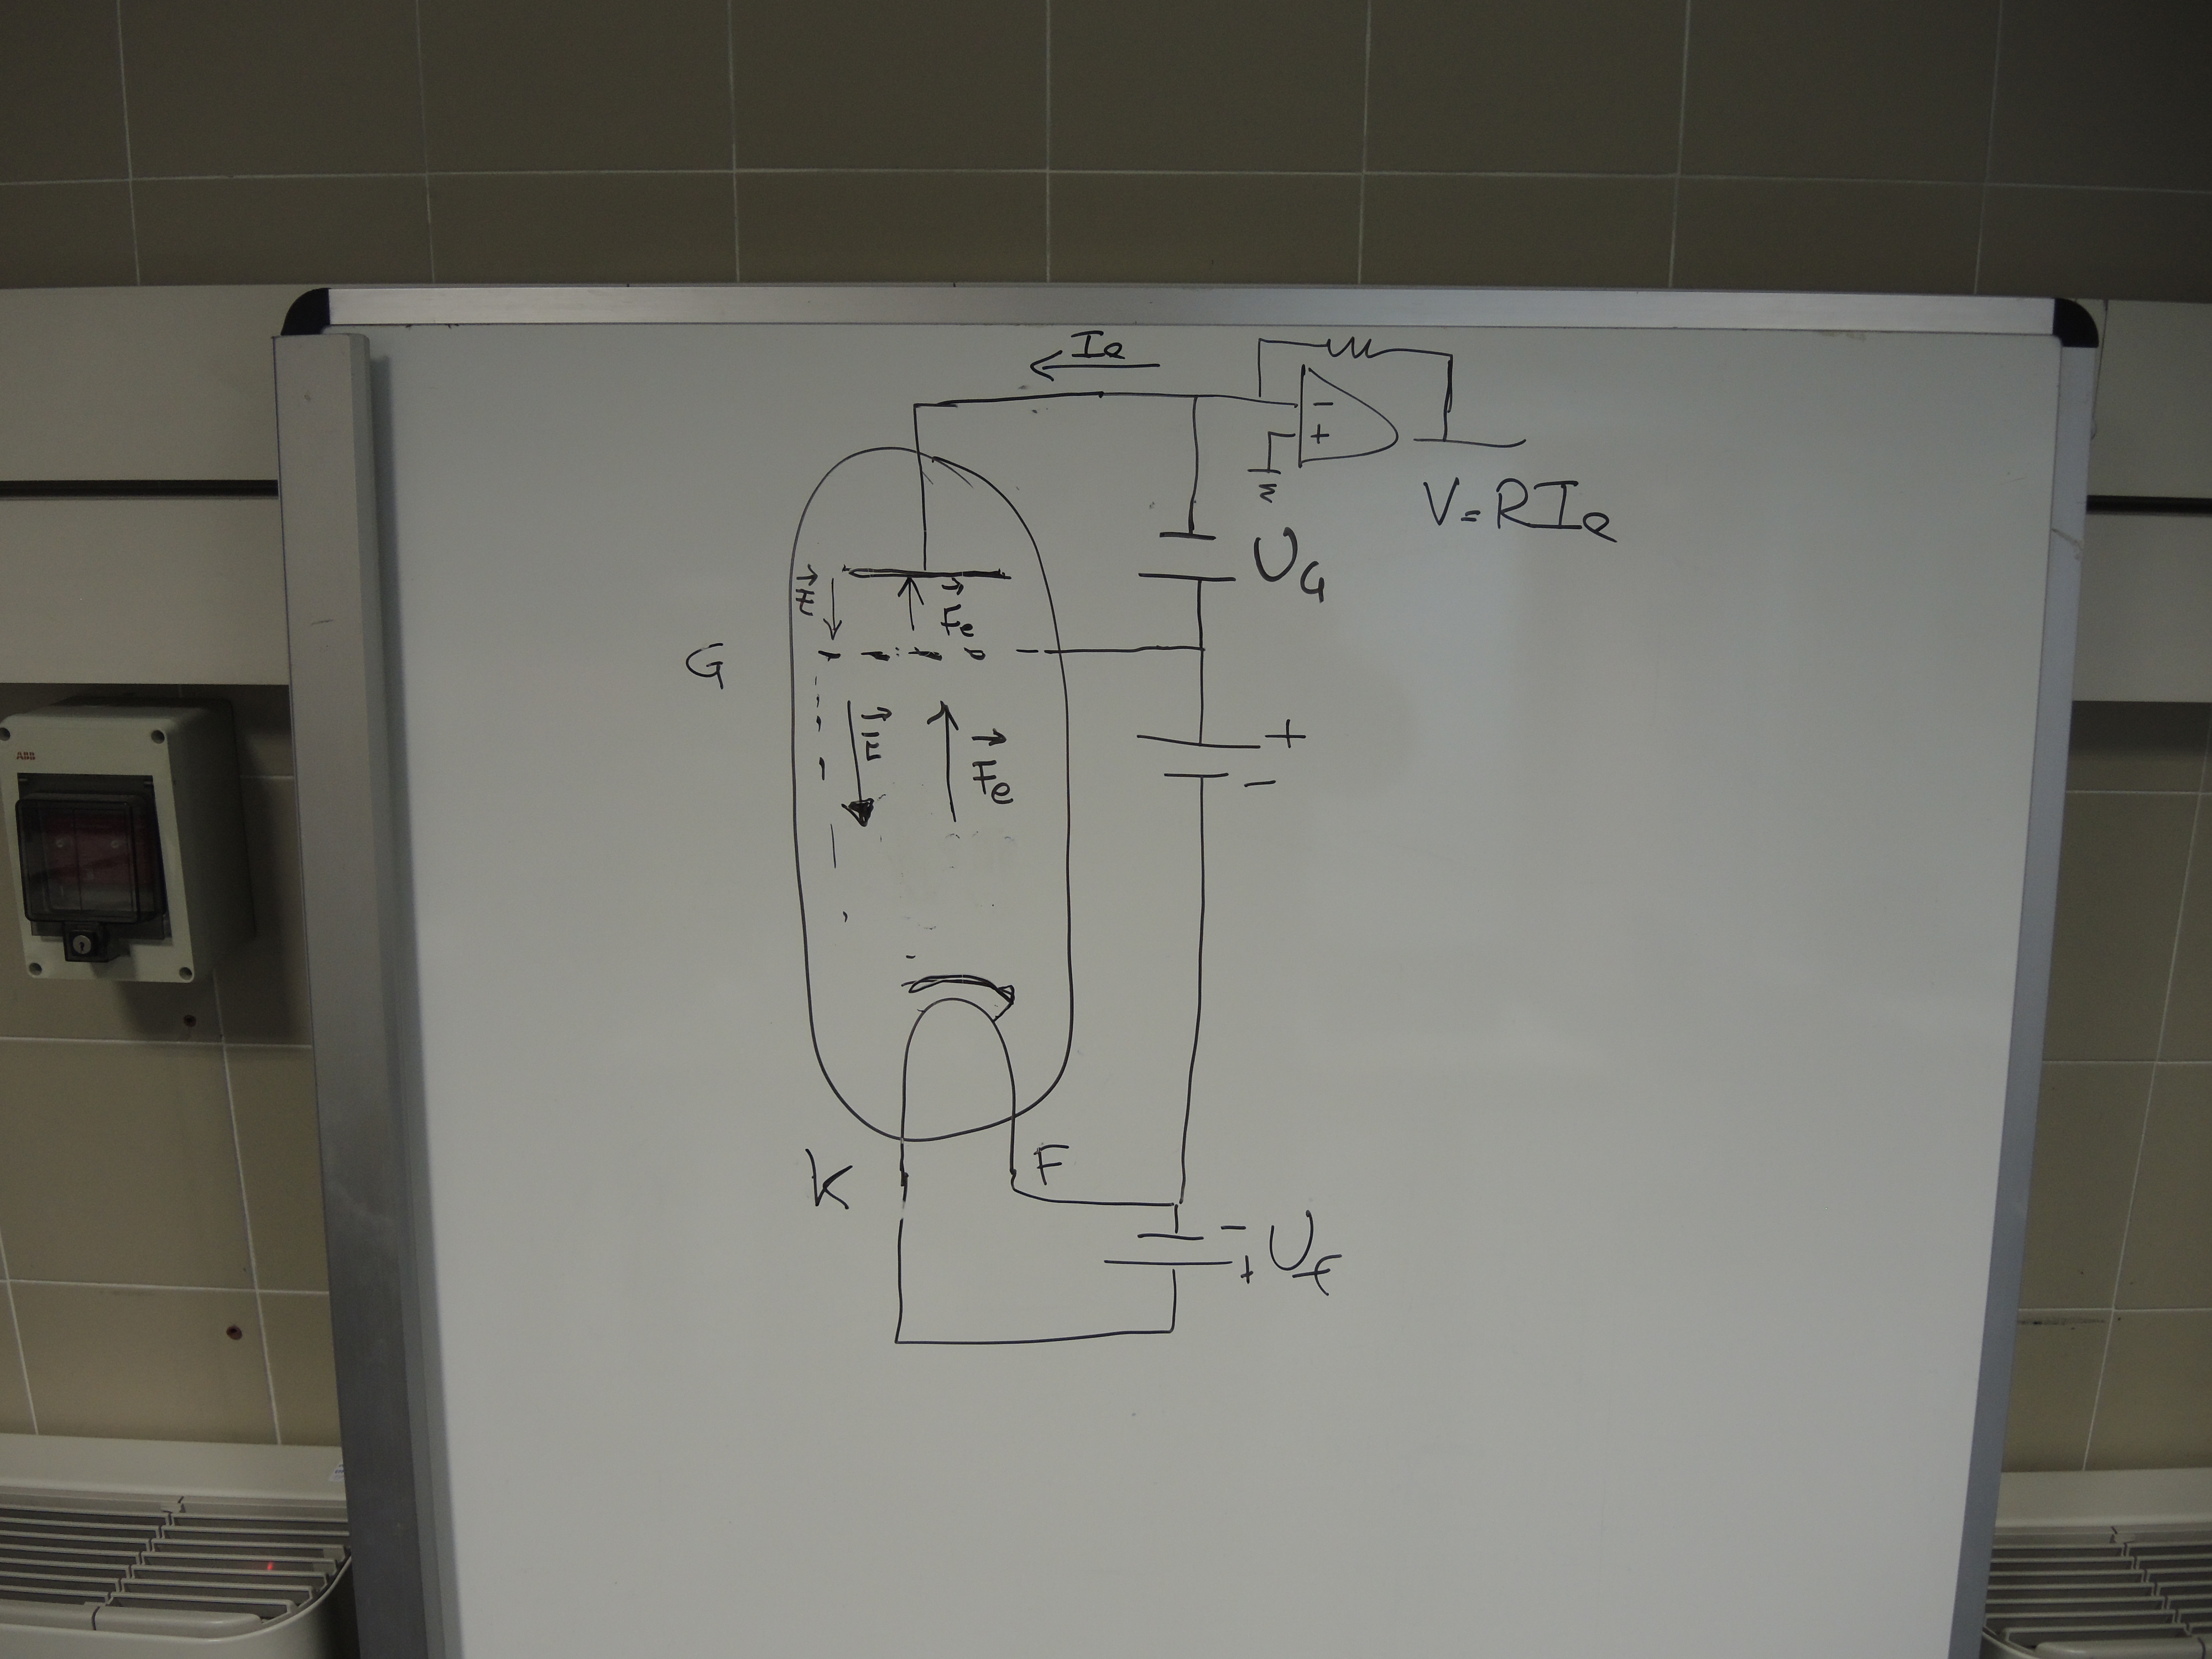 Ie
-
+
V=RIe
UG
E
Fe
G
E
Fe
+
-
K
F
- Uf
+
ABB